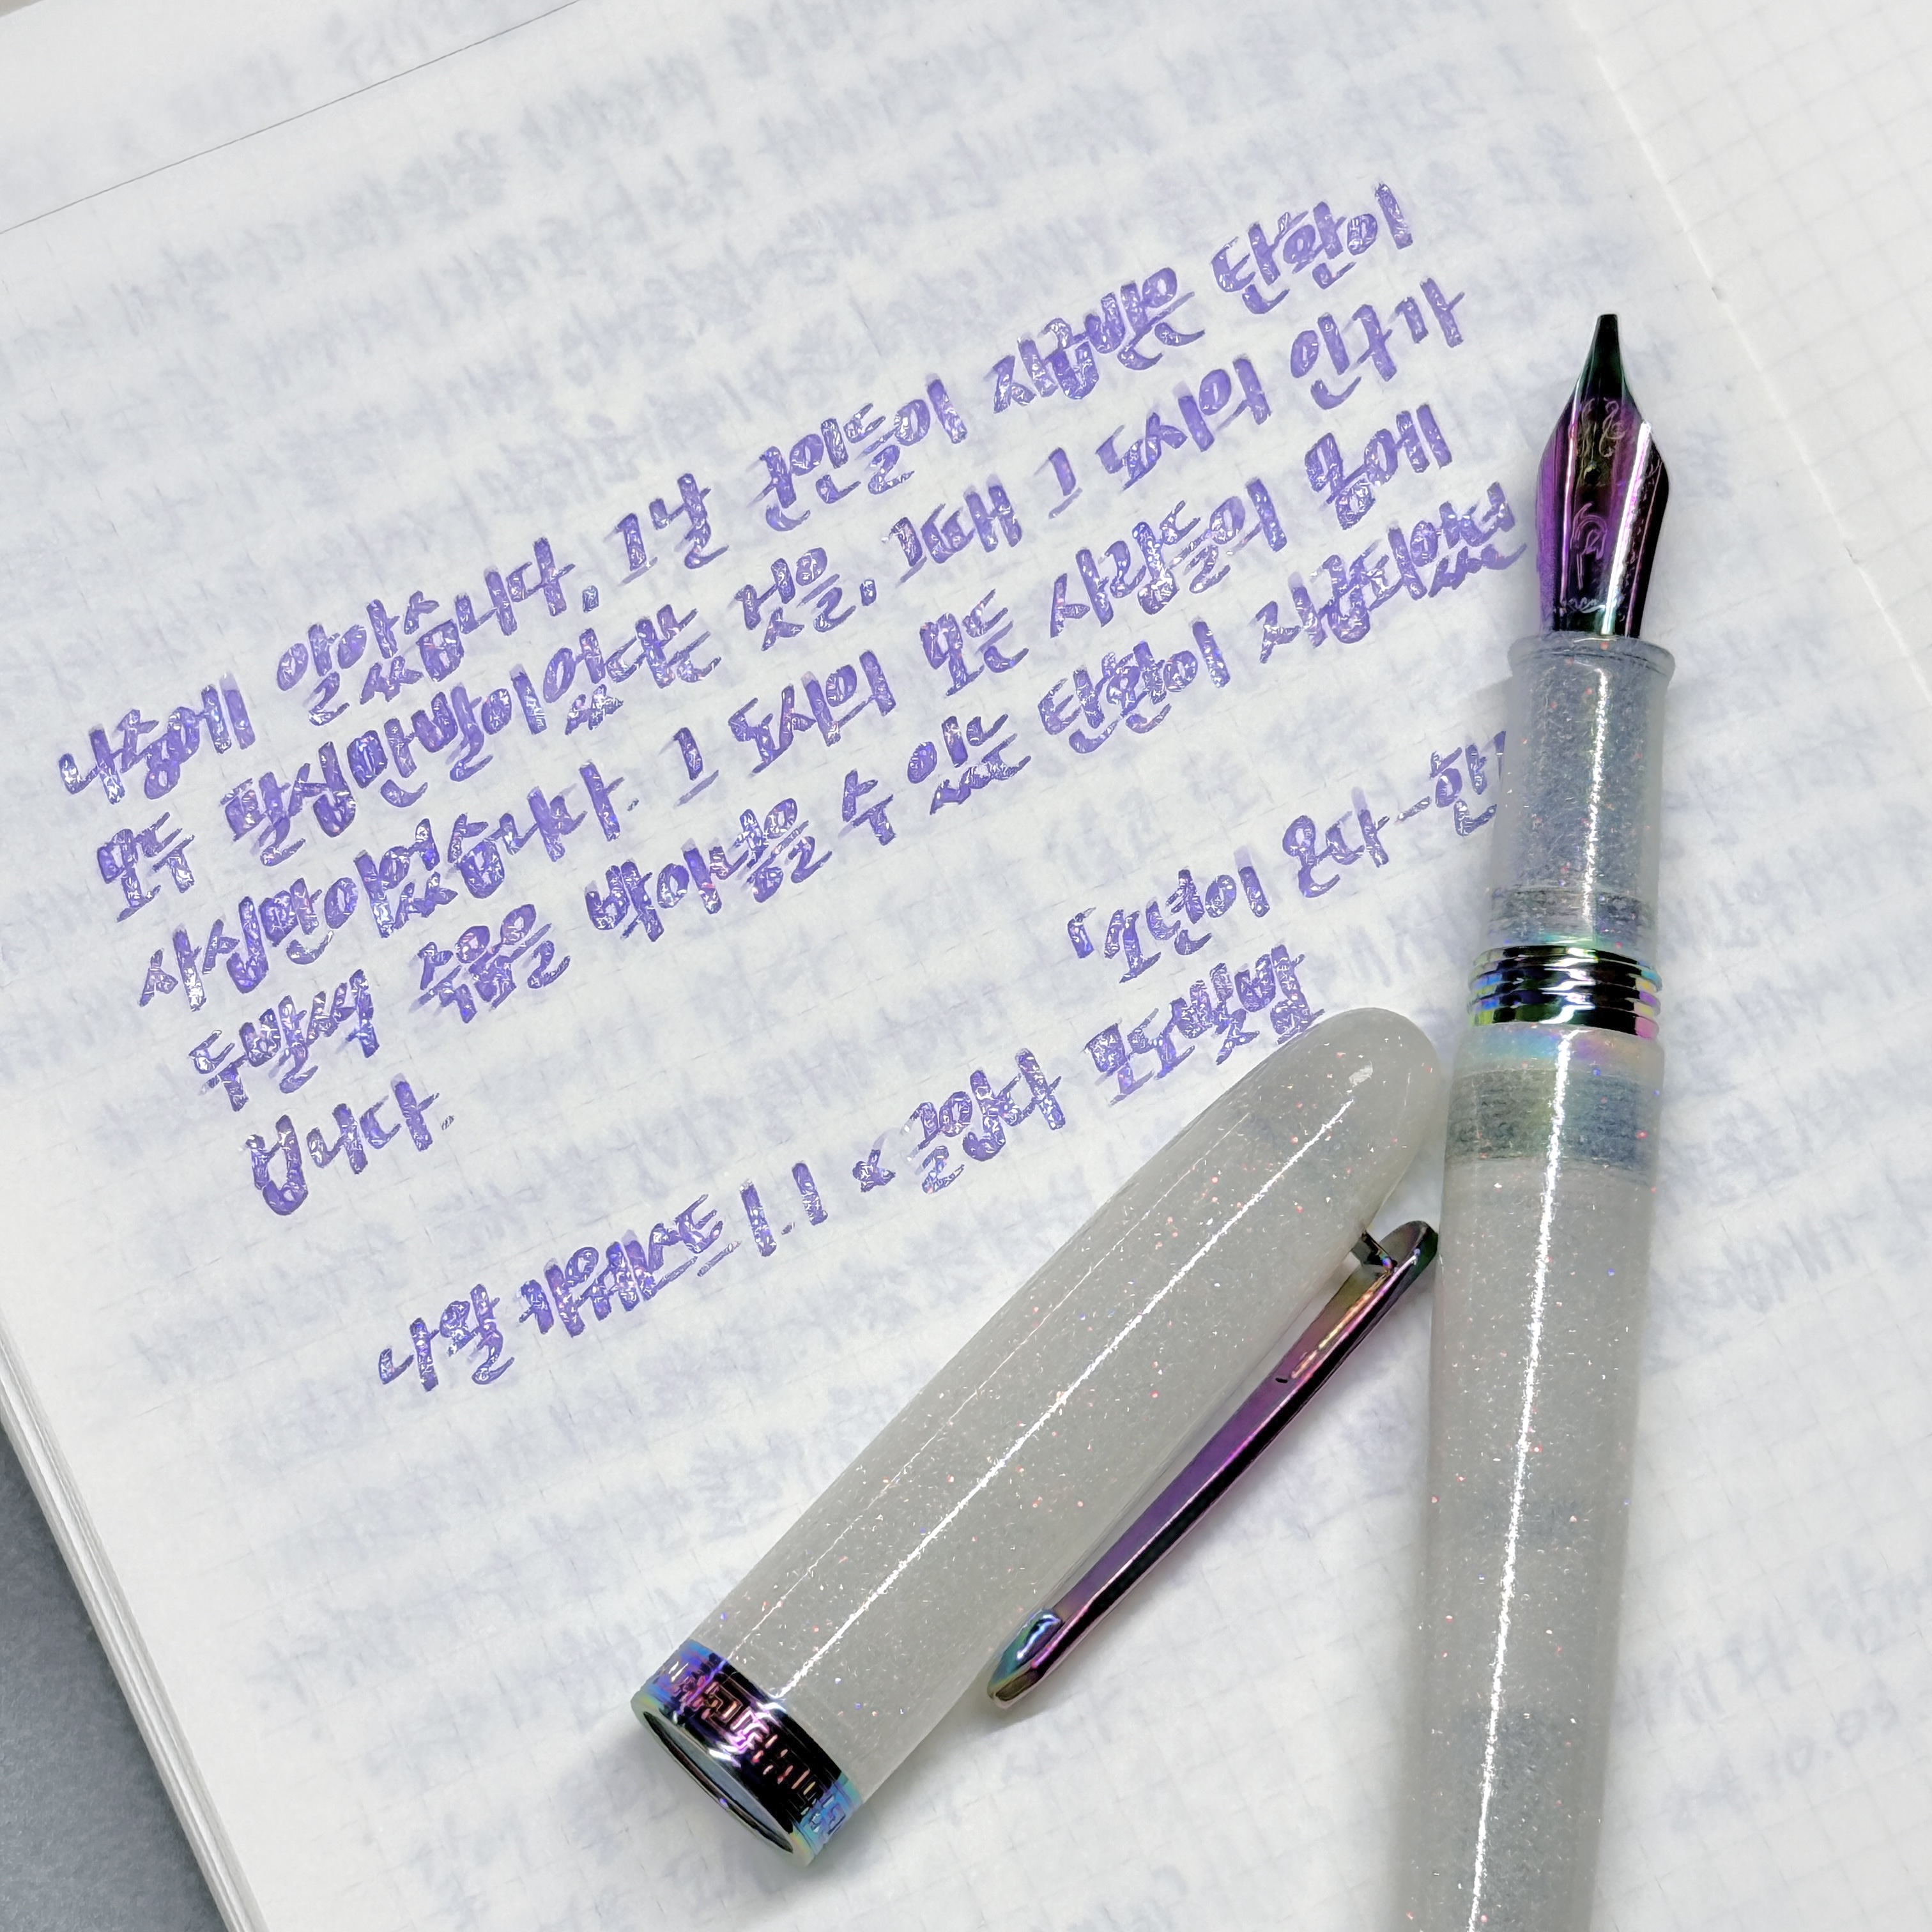 나중에 알았습니다, 그날 군인들이 지급받은 탄환이
모두 팔십만발이었다는 것을. 그때 그 도시의 인구가
사십만이었습니다. 그 도시의 모든 사람들의 몸에
두발씩 죽음을 박아넣을 수 있는 탄환이 지급되었던
겁니다.
「소년이 온다 - 한
나왈 카워스드 1.1 × 글입다 보도빛밤